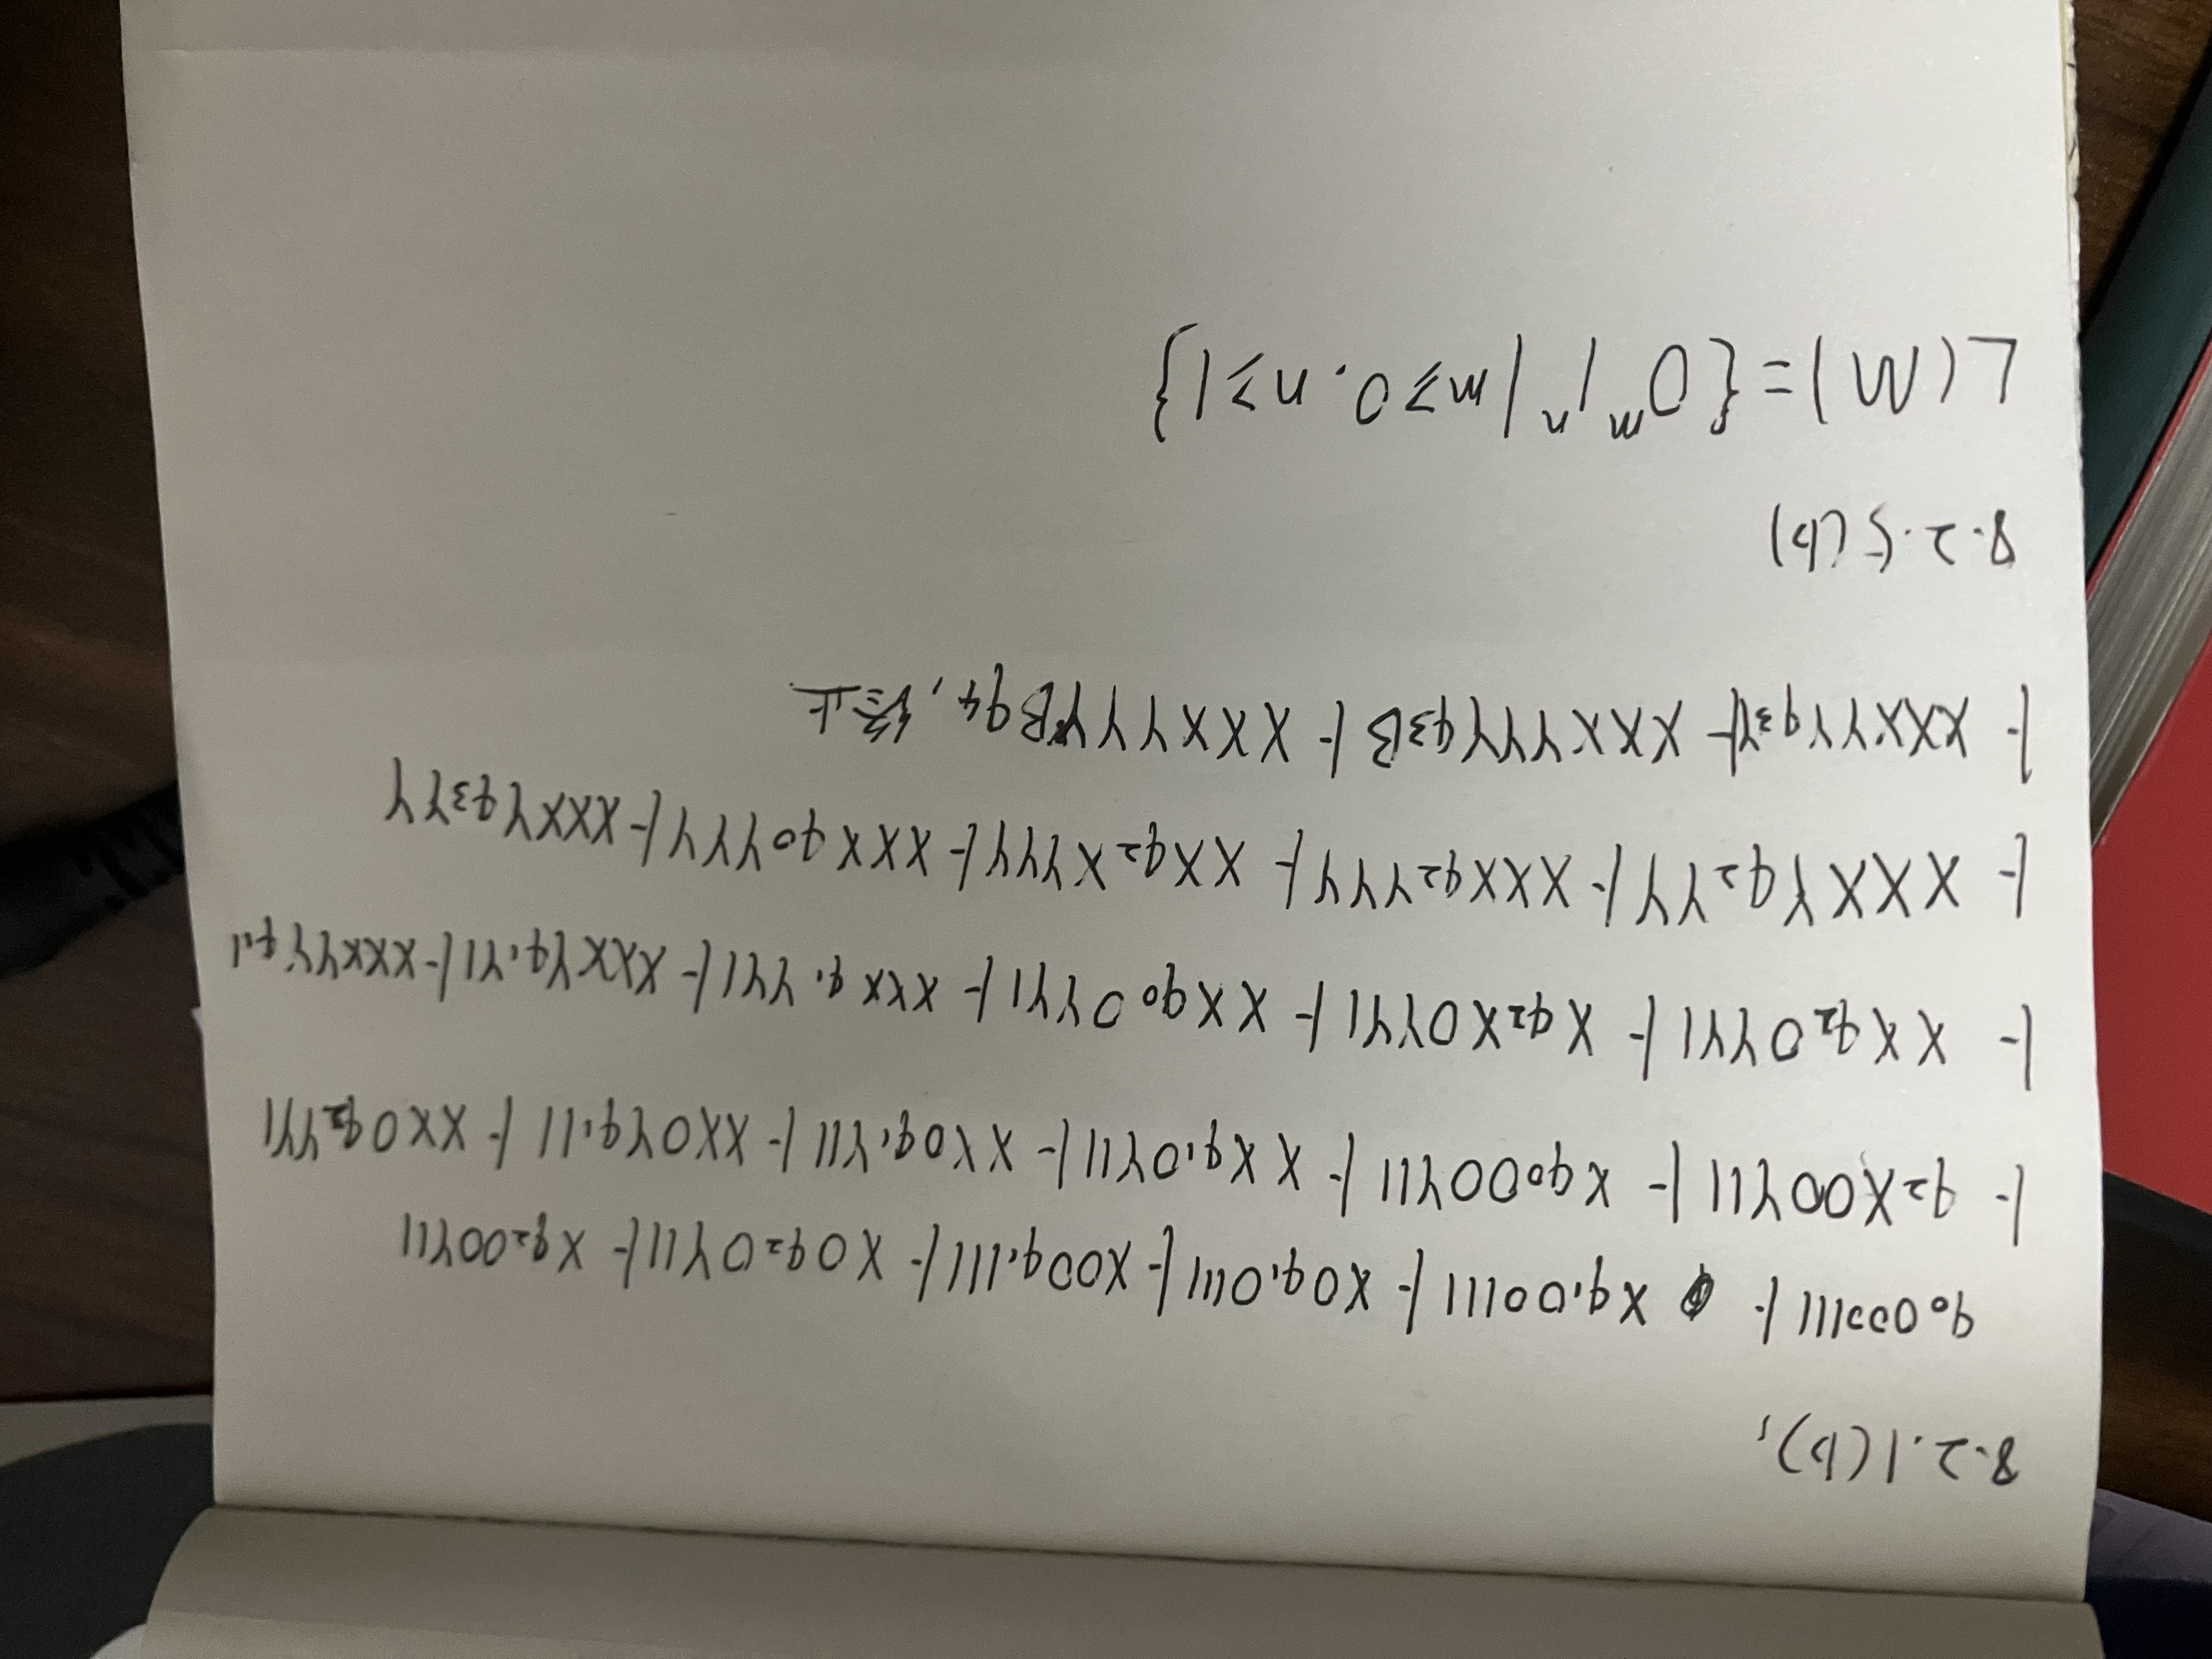 8.2.1(b),
q₀000111 ⊢ Xq₁00111 ⊢ X0q₁0111 ⊢ X00q₁111 ⊢ X0q₂0Y11 ⊢ Xq₂00Y11
⊢ q₂X00Y11 ⊢ Xq₀00Y11 ⊢ XXq₁0Y11 ⊢ XX0q₁Y11 ⊢ XX0Yq₁11 ⊢ XX0q₂YY1
⊢ XXq₂0YY1 ⊢ Xq₂X0YY1 ⊢ XXq₀0YY1 ⊢ XXXq₁YY1 ⊢ XXXYq₁Y1 ⊢ XXXYYq₁1
⊢ XXXYq₂YY ⊢ XXXq₂YYY ⊢ XXq₂XYYY ⊢ XXXq₀YYY ⊢ XXXYq₃YY
⊢ XXXYYq₃Y ⊢ XXXYYYq₃B ⊢ XXXYYYBq₄, 终止
8.2.5(b)
L(M)={0ᵐ1ⁿ|m≥0.n≥1}